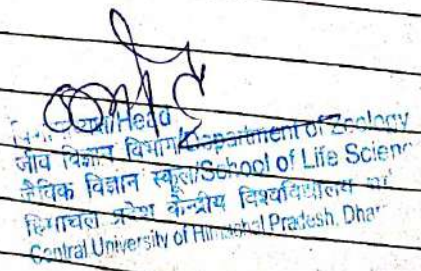 /Head
जीव विज्ञान विभाग/Department of Zoology
जैविक विज्ञान स्कूल/School of Life Scienc
हिमाचल प्रदेश केन्द्रीय विश्वविद्यालय
Central University of Himachal Pradesh, Dhar